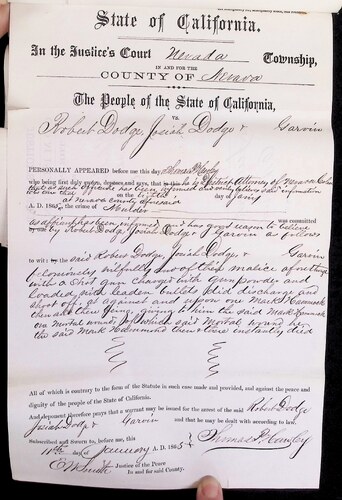 State of California.
In the Justice's Court Nevada Township,
IN AND FOR THE
COUNTY OF Nevada
The People of the State of California,
vs.
Robert Dodge, Josiah Dodge & Garvin
PERSONALLY APPEARED before me this day Thomas P. Hawley
who being first duly sworn, deposes and says, that he is District Attorney of Nevada
that as such officer has been informed and verily believes said information
to be true that on the day of Jany
A. D. 1865 at Nevada County aforesaid
the crime of Murder was committed
as affiant has been informed and has good reason to believe
by Robert Dodge Josiah Dodge & Garvin as follows
to wit: the said Robert Dodge, Josiah Dodge & Garvin
feloniously wilfully and of their malice aforethought
with a Shot gun charged with Gunpowder and
loaded with leaden bullets did discharge and
shoot off, at against and upon one Mark Hammock
then and there giving to him the said Mark Hammock
one Mortal wound of which said Mortal wound he
the said Mark Hammock then & there instantly died
All of which is contrary to the form of the Statute in such case made and provided, and against the peace and
dignity of the people of the State of California.
And deponent therefore prays that a warrant may be issued for the arrest of the said Robert Dodge
Josiah Dodge & Garvin and that he may be dealt with according to law.
Subscribed and sworn to, before me, this
11th day of January A. D. 1865
Justice of the Peace
In and for said County.